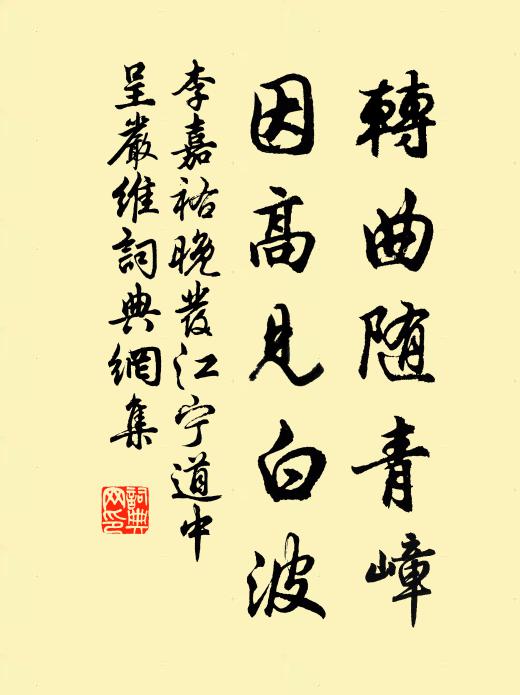 轉曲随青嶂
因高見白波
李嘉祐晚發江宁道中
呈嚴维詞典網集
詞典
网印